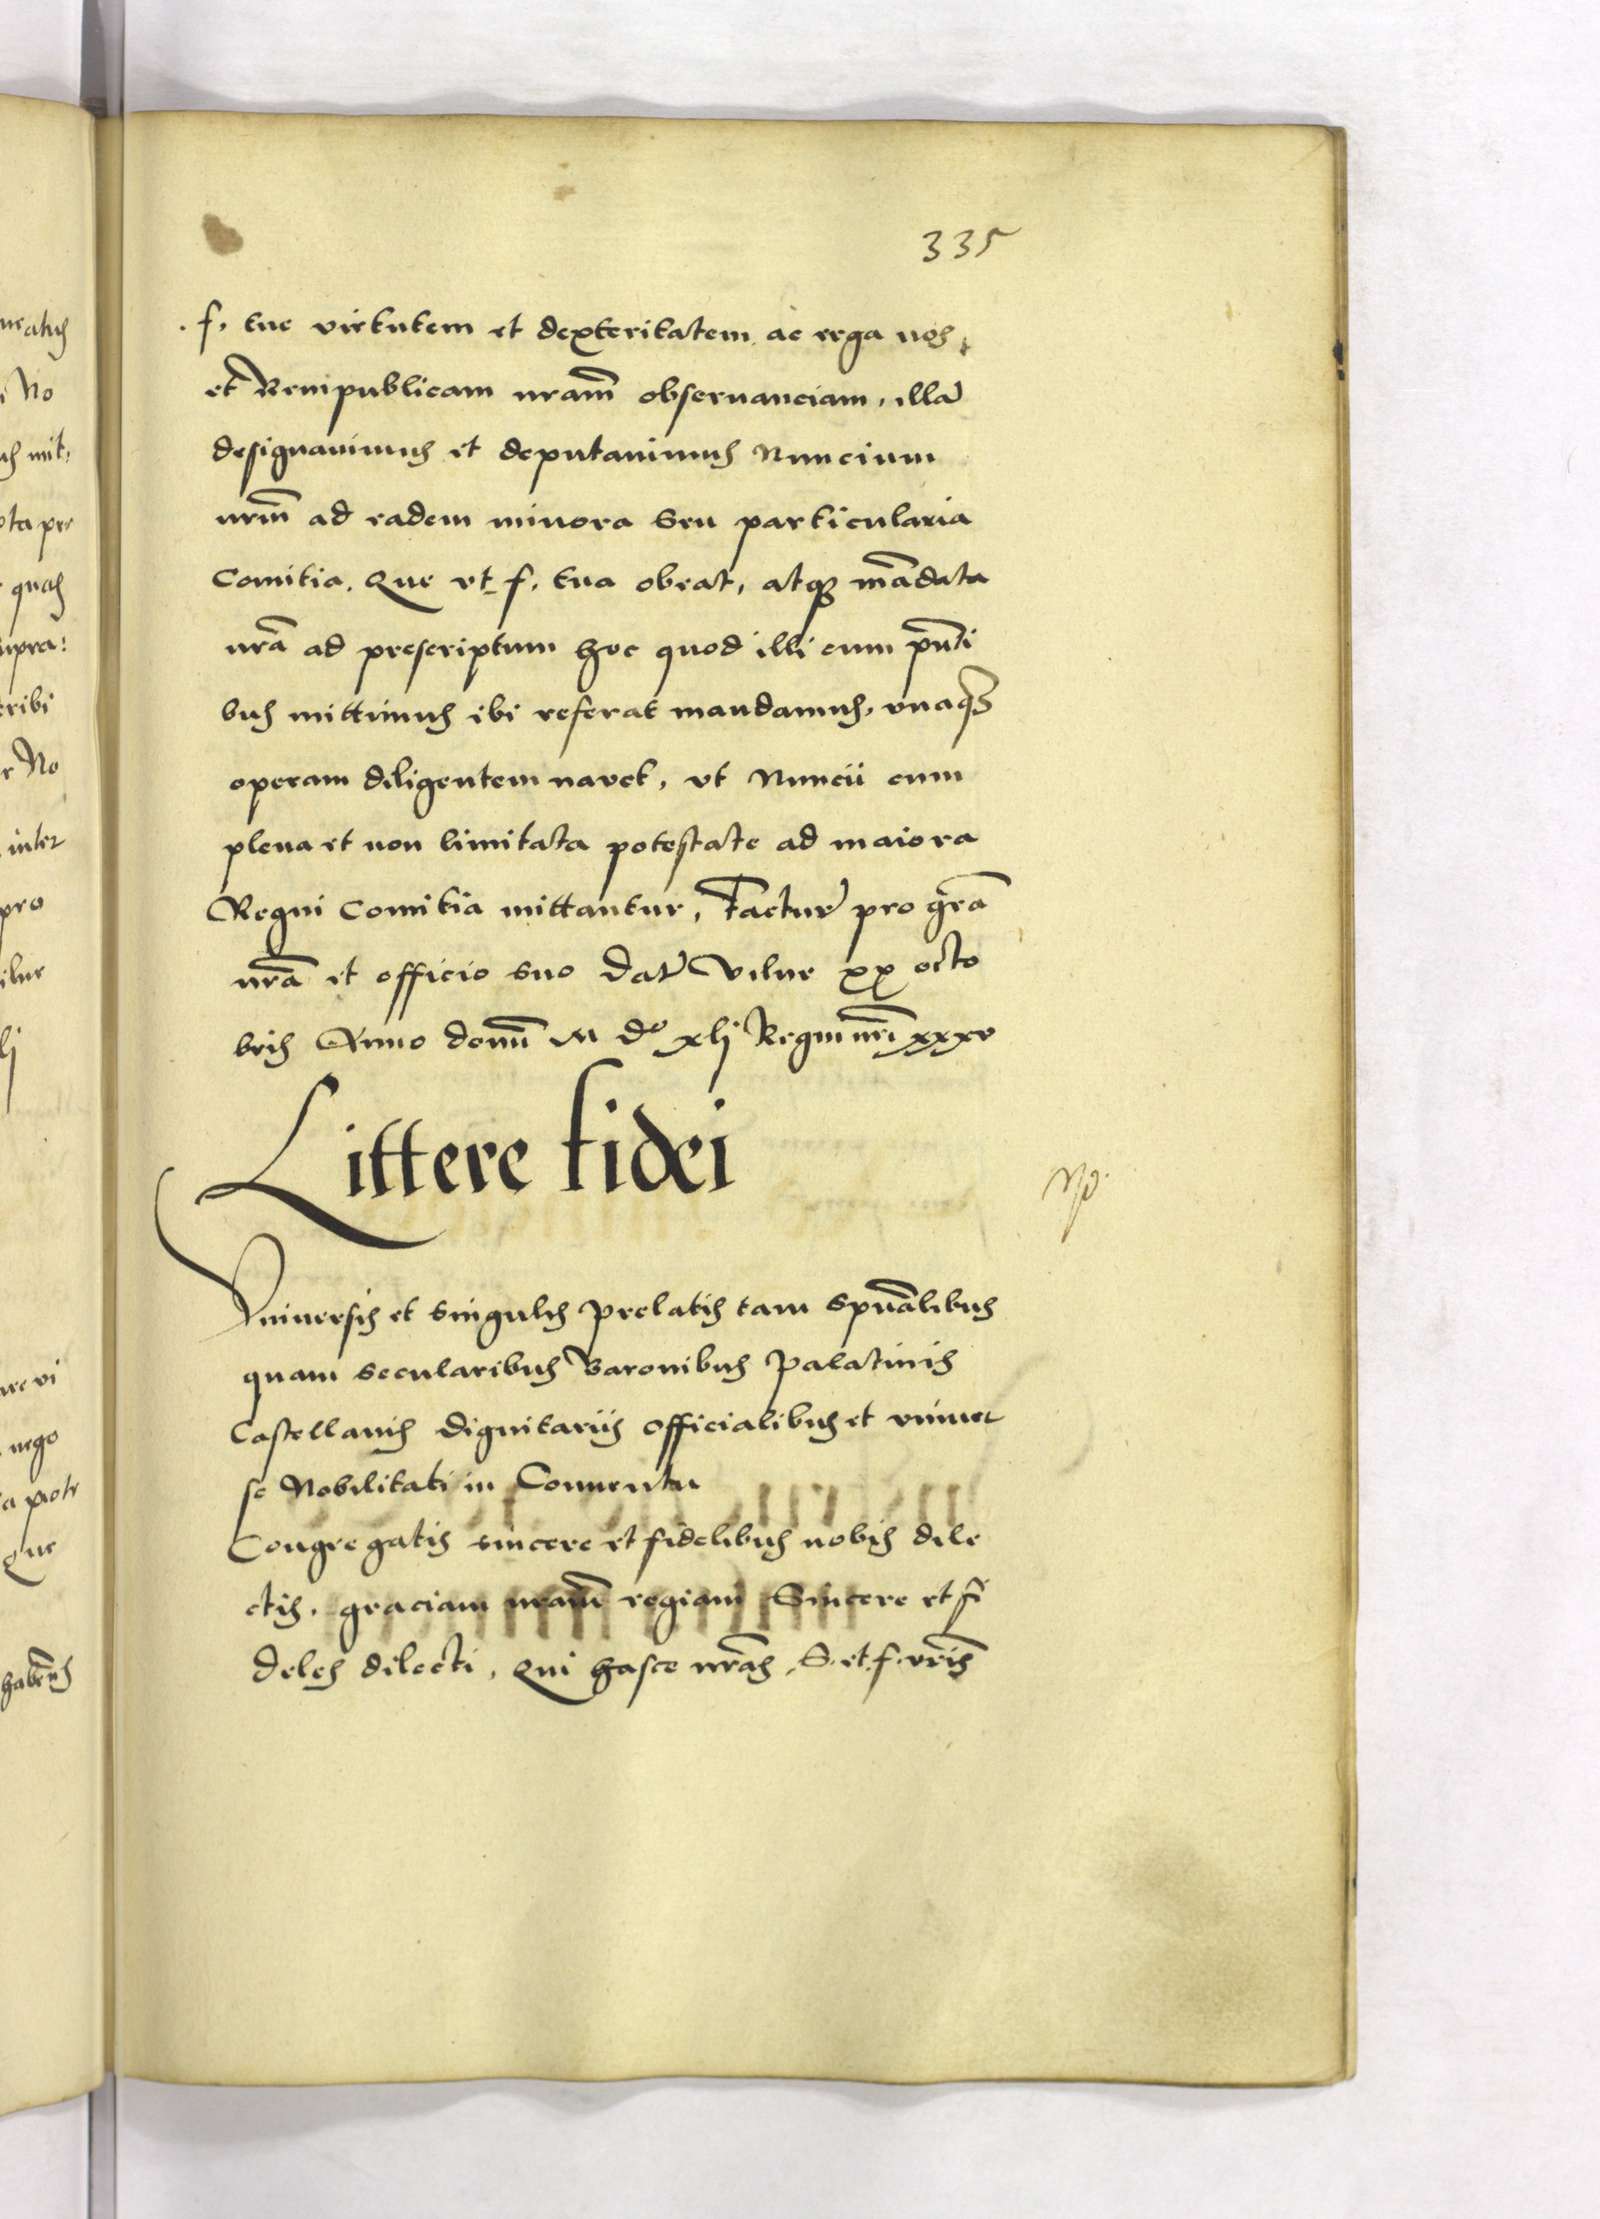 335
.f. tue virtutem et dexteritatem ac erga nos
et Rempublicam nram̄ obseruanciam, illā
designauimus et deputauimus Nuncium
nrm̄ ad eadem minora seu particularia
Comitia. Que vt f. tua obeat, atq₃ mādata
nrā ad prescriptum hoc quod illi cum pn̄ti
bus mittimus ibi referat mandamus, vnaq₃
operam diligentem navet, vt Nuncii cum
plena et non limitata potestate ad maiora
Regni Comitia mittantur, Factur̄ pro gr̄a
nrā et officio suo Dat̄ Vilne xx octo
bris Anno domī M dº xlj Regni nrī xxxv
Littere fidei
Vniuersis et singulis prelatis tam spūalibus
quam secularibus Baronibus Palatinis
Castellanis Dignitariis Officialibus et vniuer
se Nobilitati in Conuentu
Congregatis sincere et fidelibus nobis dile
ctis. graciam nram̄ regiam Sincere et fi
deles dilecti, Qui hasce nrās .S. et .f. vrīs